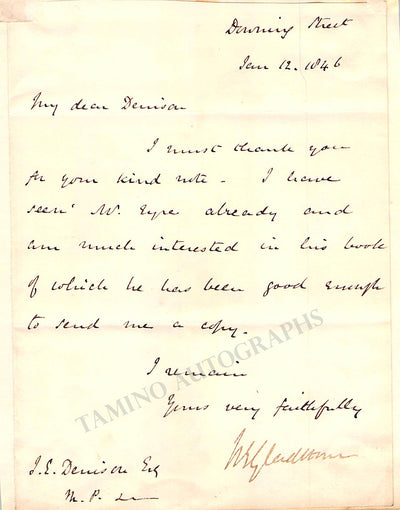 Downing Street
Jan 12. 1846
My dear Denison
I must thank you
for your kind note - I have
seen Mr. Eyre already and
am much interested in his book
of which he has been good enough
to send me a copy.
I remain
Yours very faithfully
WEGladstone
J.E. Denison Esq
M.P.
TAMINO AUTOGRAPHS